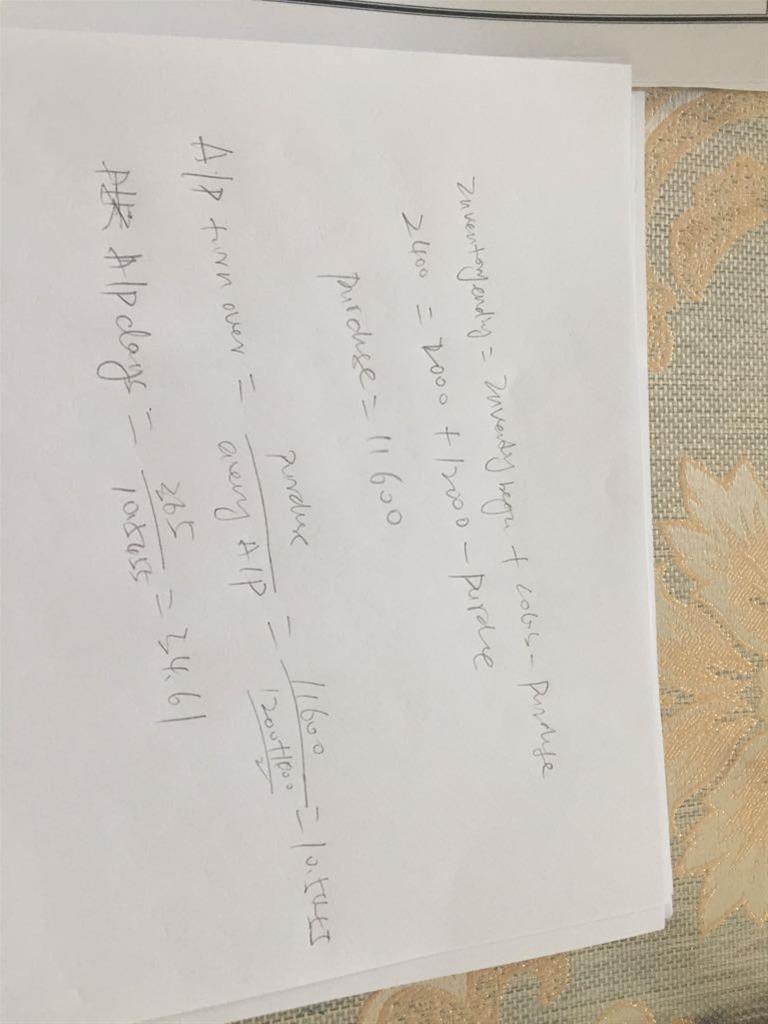 Inventory ending = Inventory begin + COGS - purchase
2400 = 2000 + 12000 - purchase
purchase = 11600
A/P turn over = purchase / avery A/P = 11600 / (1200+1000 / 2) = 10.5455
A/P days = 365 / 10.5455 = 34.61